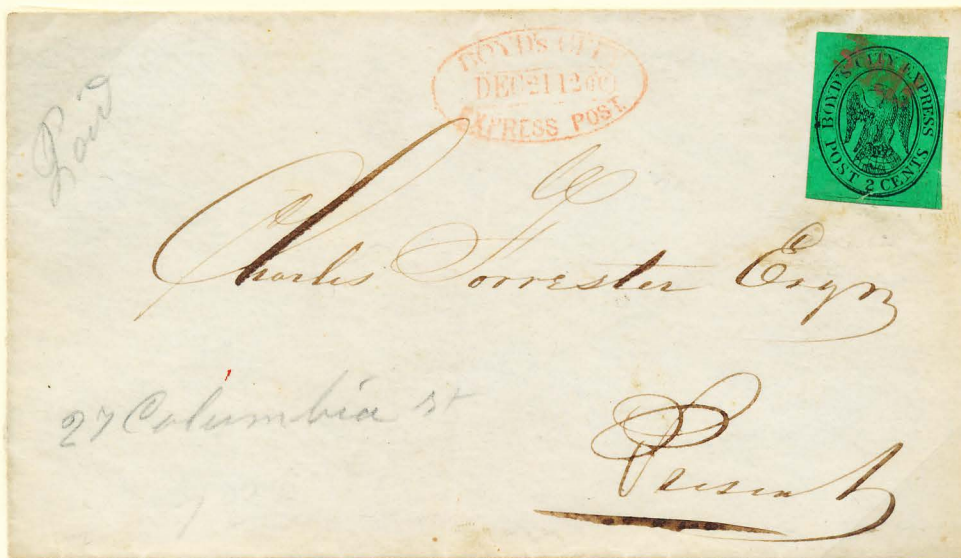 Paid
BOYD'S CITY
DEC 21 12
EXPRESS POST.
BOYD'S CITY EXPRESS
POST 2 CENTS
Charles Forrester Esqr
27 Columbia st
Present